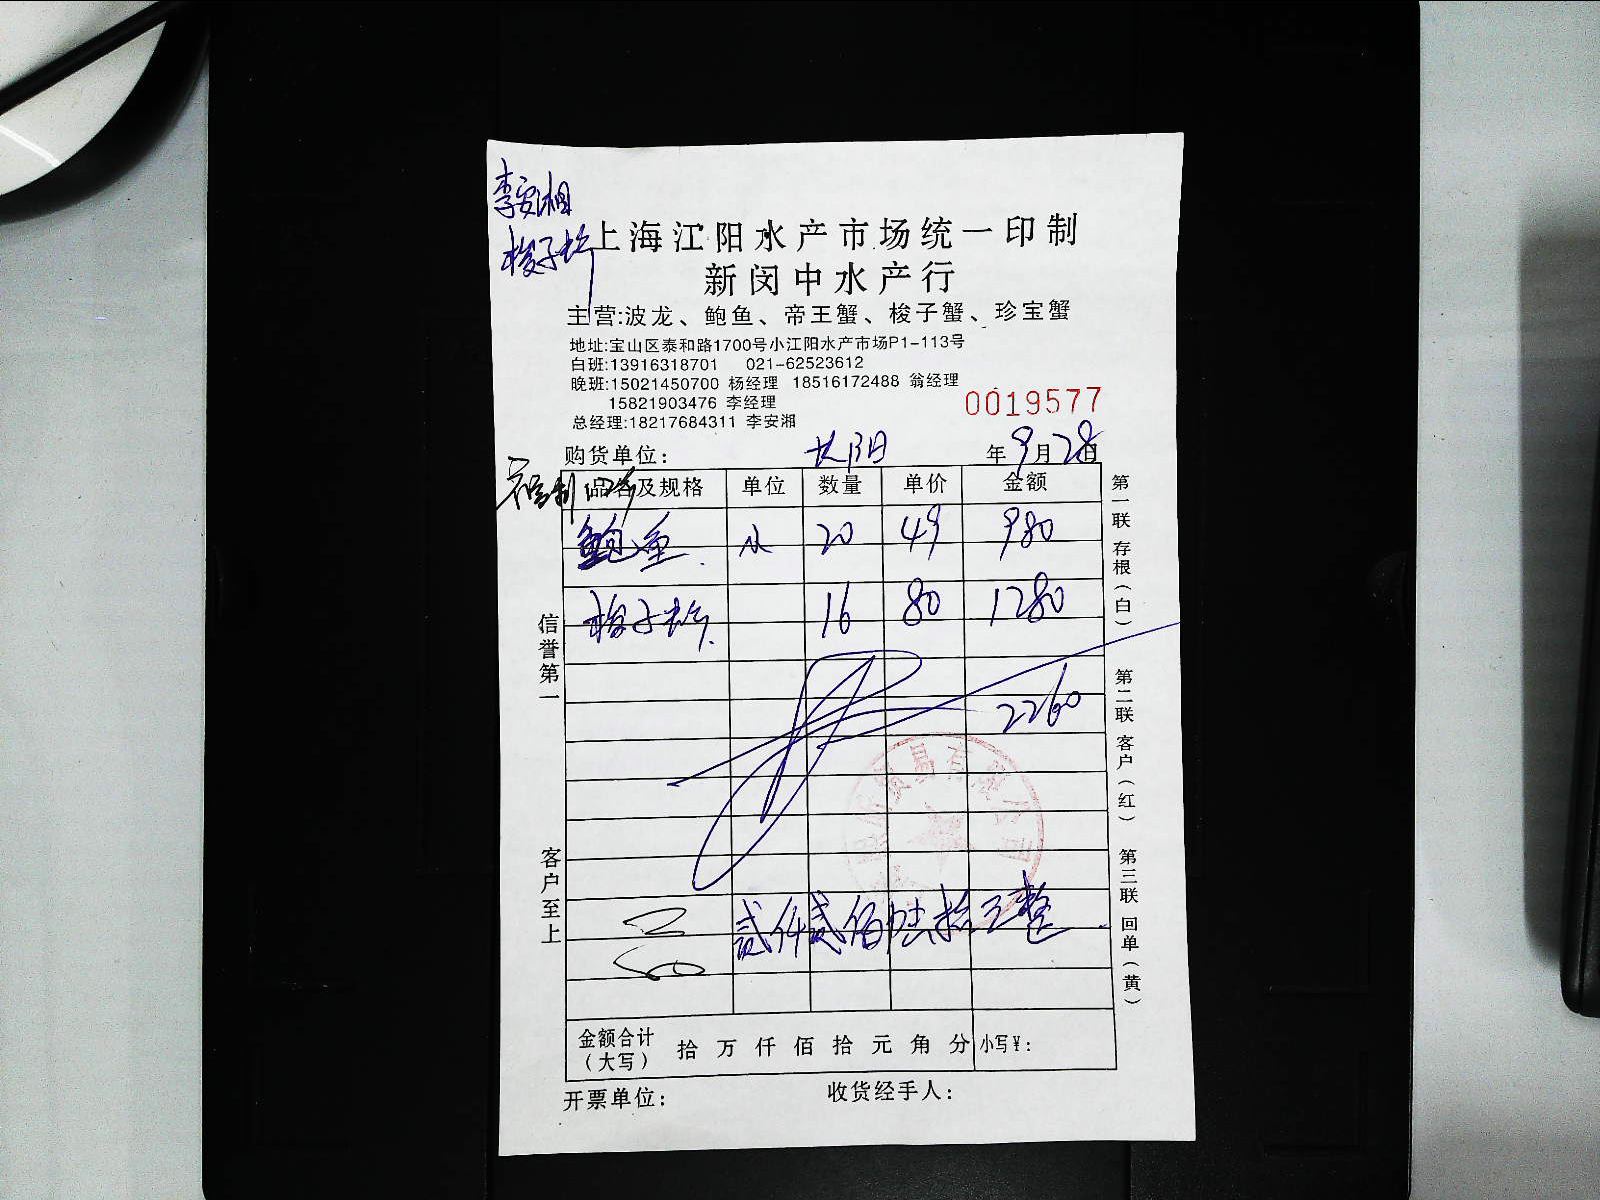 李安湘
梭子蟹
上海江阳水产市场统一印制
新闵中水产行
主营:波龙、鲍鱼、帝王蟹、梭子蟹、珍宝蟹
地址:宝山区泰和路1700号小江阳水产市场P1-113号
白班:13916318701 021-62523612
晚班:15021450700 杨经理 18516172488 翁经理
15821903476 李经理
0019577
总经理:18217684311 李安湘
购货单位: 长阳 年9月28日
品名及规格 单位 数量 单价 金额
鲍鱼 20 49 980
梭子蟹 16 80 1280
2260
贰仟贰佰陆拾元整
金额合计(大写) 拾 万 仟 佰 拾 元 角 分 小写¥:
开票单位: 收货经手人:
信誉第一
客户至上
第一联 存根(白)
第二联 客户(红)
第三联 回单(黄)
贸易有限公司